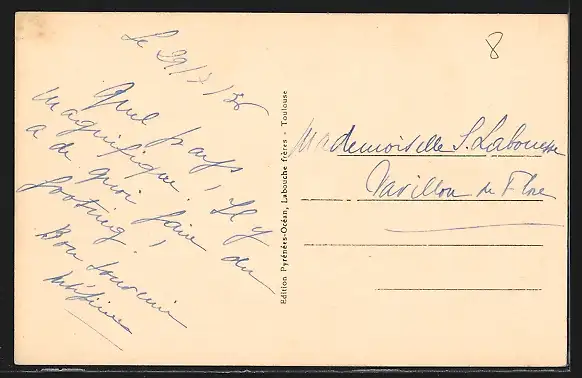 8
Le 29/7/36
Quel pays
magnifique! Il y
a de quoi faire du
footing!
Bon souvenir
Edition Pyrénées-Océan, Labouche frères - Toulouse
Mademoiselle S. Labouesse
Pavillon de Flore